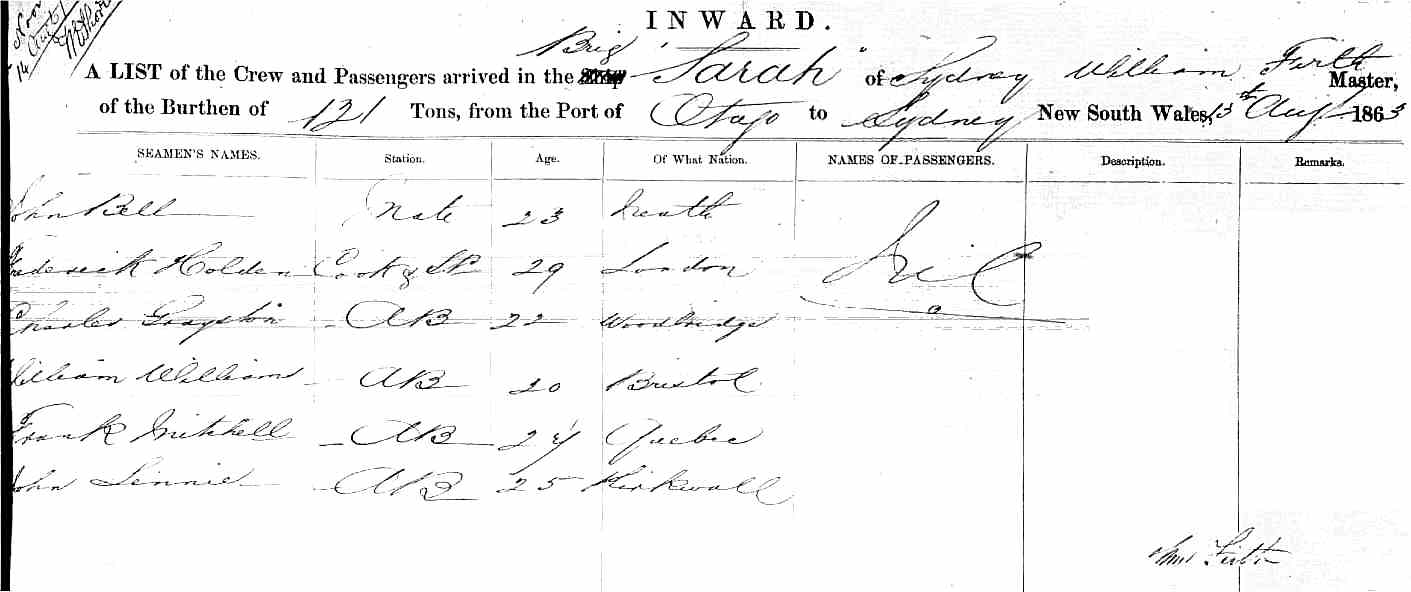 INWARD.
Brig
A LIST of the Crew and Passengers arrived in the Ship "Sarah" of Sydney William Firth Master,
of the Burthen of 121 Tons, from the Port of Otago to Sydney New South Wales, 13th Aug 1863
SEAMEN'S NAMES. Station. Age. Of What Nation. NAMES OF PASSENGERS. Description. Remarks.
John Bell Mate 23 Neath
Frederick Holden Cook & 29 London
Charles Grayston AB 22 Woodbridge
William Williams AB 20 Bristol
Frank Mitchell AB 24 Quebec
John Linnie AB 25 Kirkwall
Firth